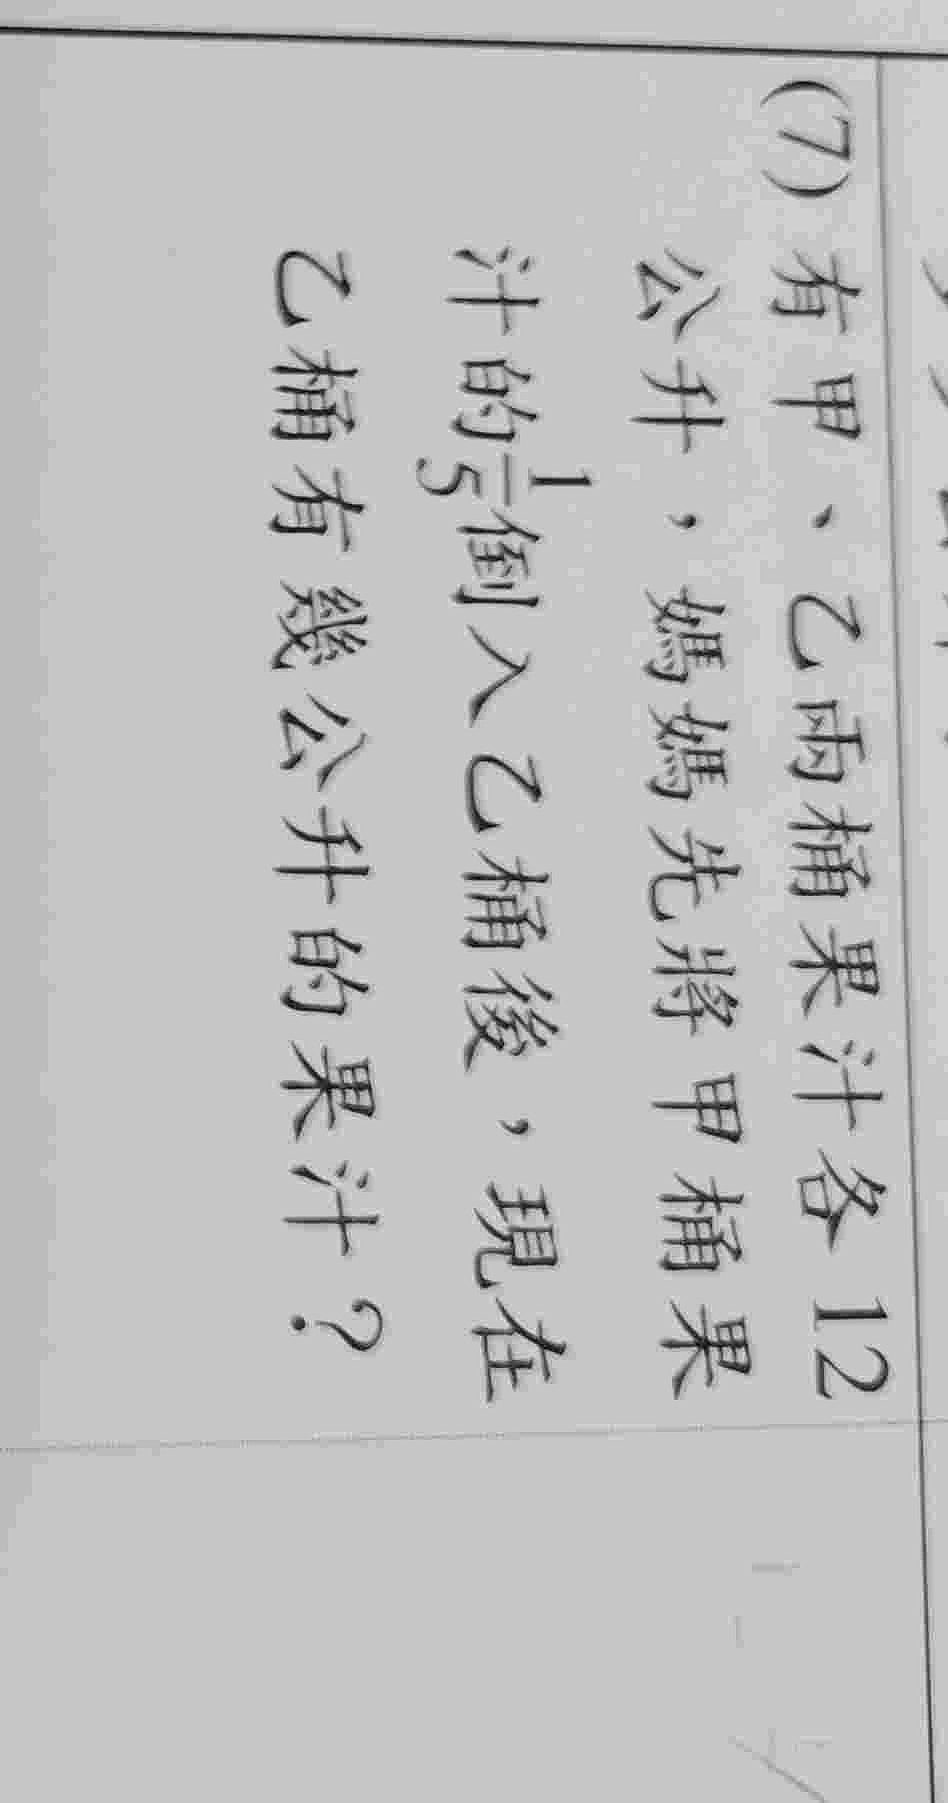 (7) 有甲、乙兩桶果汁各 12
公升，媽媽先將甲桶果
汁的1/5倒入乙桶後，現在
乙桶有幾公升的果汁？